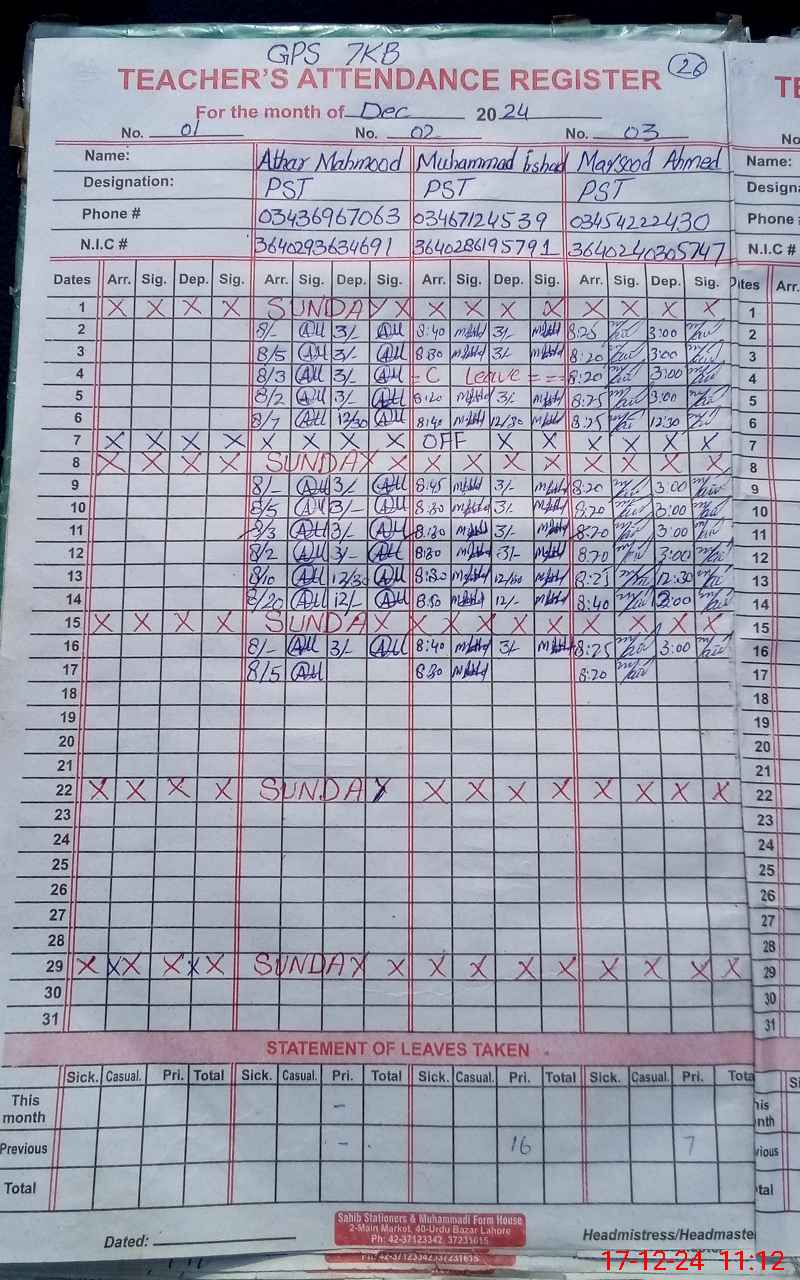 GPS 7KB
TEACHER'S ATTENDANCE REGISTER 26
For the month of Dec 2024
No. 01 No. 02 No. 03
Name: Athar Mahmood Muhammad Irshad Maqsood Ahmed Name:
Designation: PST PST PST
Phone # 03436967063 03467124539 03454222430 Phone
N.I.C # 3640293634691 3640286195791 3640240305747 N.I.C #
Dates Arr. Sig. Dep. Sig. Arr. Sig. Dep. Sig. Arr. Sig. Dep. Sig. Arr. Sig. Dep. Sig. Arr.
1 X X X X SUNDAY X X X X X X X X X 1
2 8/- 3/- 8:40 3/- 8:25 3:00 2
3 8/5 3/- 8:30 3/- 8:20 3:00 3
4 8/3 3/- = C Leave = = 8:20 3:00 4
5 8/2 3/- 8:20 3/- 8:25 3:00 5
6 8/7 12/30 8:40 12/30 8:25 12:30 6
7 X X X X X X X X OFF X X X X X X 7
8 X X X X SUNDAY X X X X X X X X X 8
9 8/- 3/- 8:45 3/- 8:20 3:00 9
10 8/5 3/- 8:30 3/- 8:20 3:00 10
11 8/3 3/- 8:30 3/- 8:20 3:00 11
12 8/2 3/- 8:30 3/- 8:20 3:00 12
13 8/10 12/30 8:30 12/30 8:25 12:30 13
14 8/20 12/- 8:50 12/- 8:40 12:00 14
15 X X X X SUNDAY X X X X X X X X X 15
16 8/- 3/- 8:40 3/- 8:25 3:00 16
17 8/5 8:30 8:20 17
18 18
19 19
20 20
21 21
22 X X X X SUNDAY X X X X X X X X 22
23 23
24 24
25 25
26 26
27 27
28 28
29 X XX X XX SUNDAY X X X X X X X X X 29
30 30
31 31
STATEMENT OF LEAVES TAKEN
Sick. Casual. Pri. Total Sick. Casual. Pri. Total Sick. Casual. Pri. Total Sick. Casual. Pri. Tota
This month -
Previous - 16 7
Total
Sahib Stationers & Muhammadi Form House
2-Main Market, 40-Urdu Bazar Lahore
Ph: 42-37123342, 37231615
Dated: Headmistress/Headmaste
Ph: 42-37123342 37231615
17-12-24 11:12